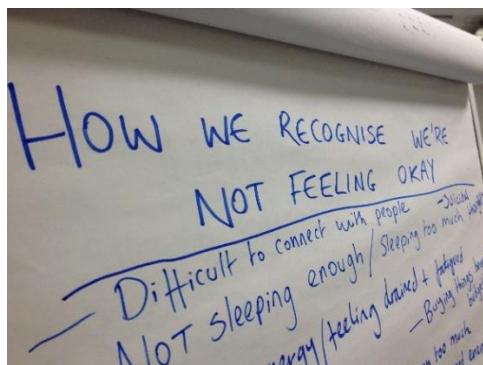 HOW WE RECOGNISE WE'RE
NOT FEELING OKAY
- Difficult to connect with people - Suicidal
- NOT sleeping enough / Sleeping too much thoughts
energy / feeling drained + fatigued
- Buying things
too much